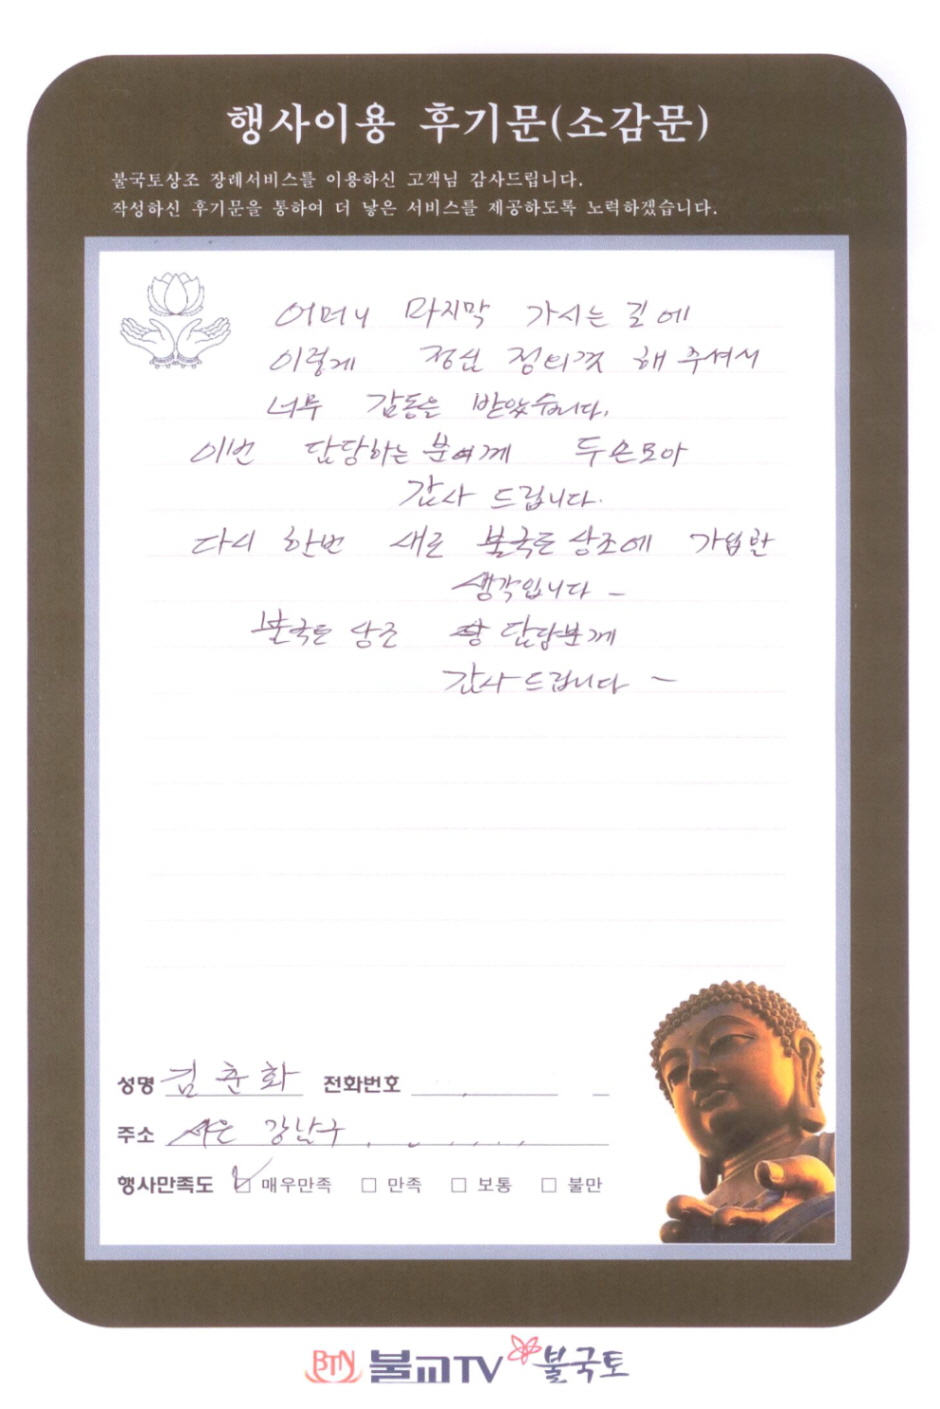 행사이용 후기문(소감문)
불국토상조 장례서비스를 이용하신 고객님 감사드립니다.
작성하신 후기문을 통하여 더 낳은 서비스를 제공하도록 노력하겠습니다.
어머니 마지막 가시는 길에
이렇게 정성 정의껏 해 주셔서
너무 감동을 받았습니다.
이번 담당하는 분에게 두손모아
감사 드립니다.
다시 한번 새로 불국토 상조에 가입한
생각입니다 -
불국토 상조 담당분께
감사 드립니다 ~
성명 김춘화 전화번호
주소 서울 강남구
행사만족도 ☑ 매우만족 □ 만족 □ 보통 □ 불만
BTN 불교TV 불국토